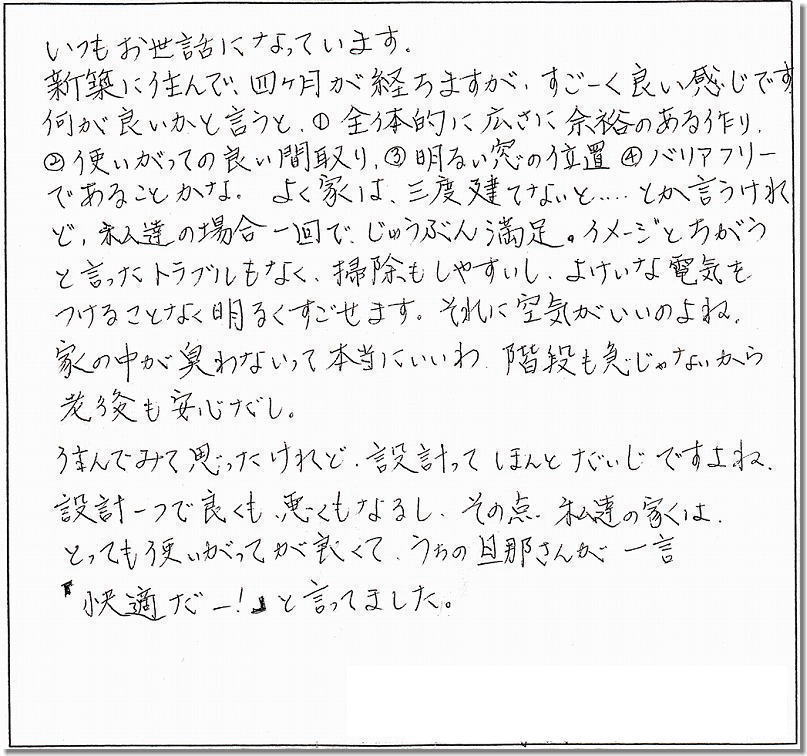 いつもお世話になっています.
新築に住んで、四ヶ月が経ちますが、すごーく良い感じです
何が良いかと言うと、① 全体的に広さに余裕のある作り.
② 使いがっての良い間取り、③ 明るい窓の位置 ④ バリアフリー
であることかな。 よく家は、三度建てないと…… とか言うけれ
ど、私達の場合一回で、じゅうぶん満足。イメージとちがう
と言ったトラブルもなく、掃除もしやすいし、よけいな電気を
つけることなく明るくすごせます。それに空気がいいのよね.
家の中が臭わないって本当にいいわ 階段も急じゃないから
老後も安心だし。
住んでみて思ったけれど、設計って ほんと だいじですよね.
設計一つで良くも、悪くもなるし、その点、私達の家は、
とっても使いがってが良くて、うちの旦那さんが 一言
『快適だー!』と言ってました。